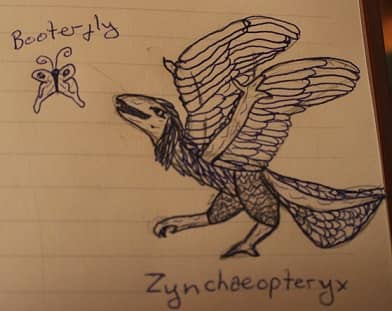 Booterfly
Zynchaeopteryx